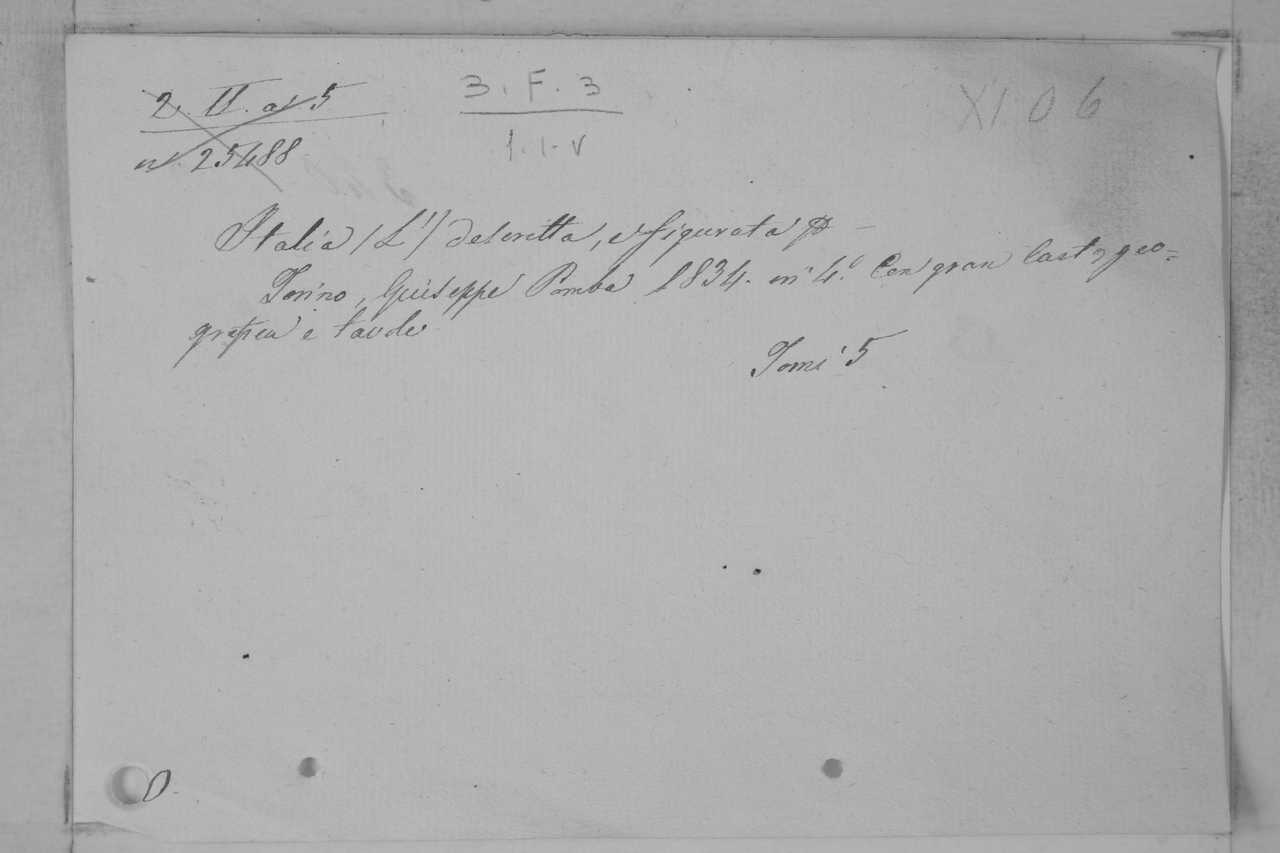 2. II. a. 5
n. 25488
3. F. 3
1. 1. V
XI 0 6
Italia (L') descritta, e figurata
Torino, Giuseppe Pomba 1834. in 4.° Con gran Carta geo=
grafica e tavole
Tomi 5